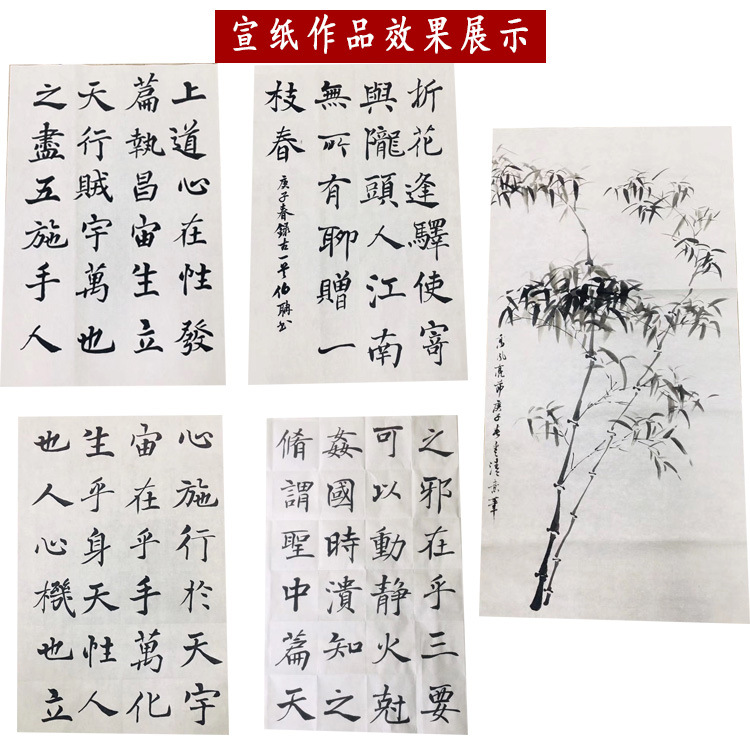 宣纸作品效果展示
上道心在性發
篇執昌宙生立
天行賊宇萬也
之盡五施手人
折花逢驛使寄
與隴頭人江南
無所有聊贈一
枝春
庚子春錄古一
心施行於天宇
宙在乎手萬化
生乎身天性人
也人心機也立
之邪在乎三要
可以動靜火尅
姦國時潰知之
脩謂聖中篇天
高風亮節庚子